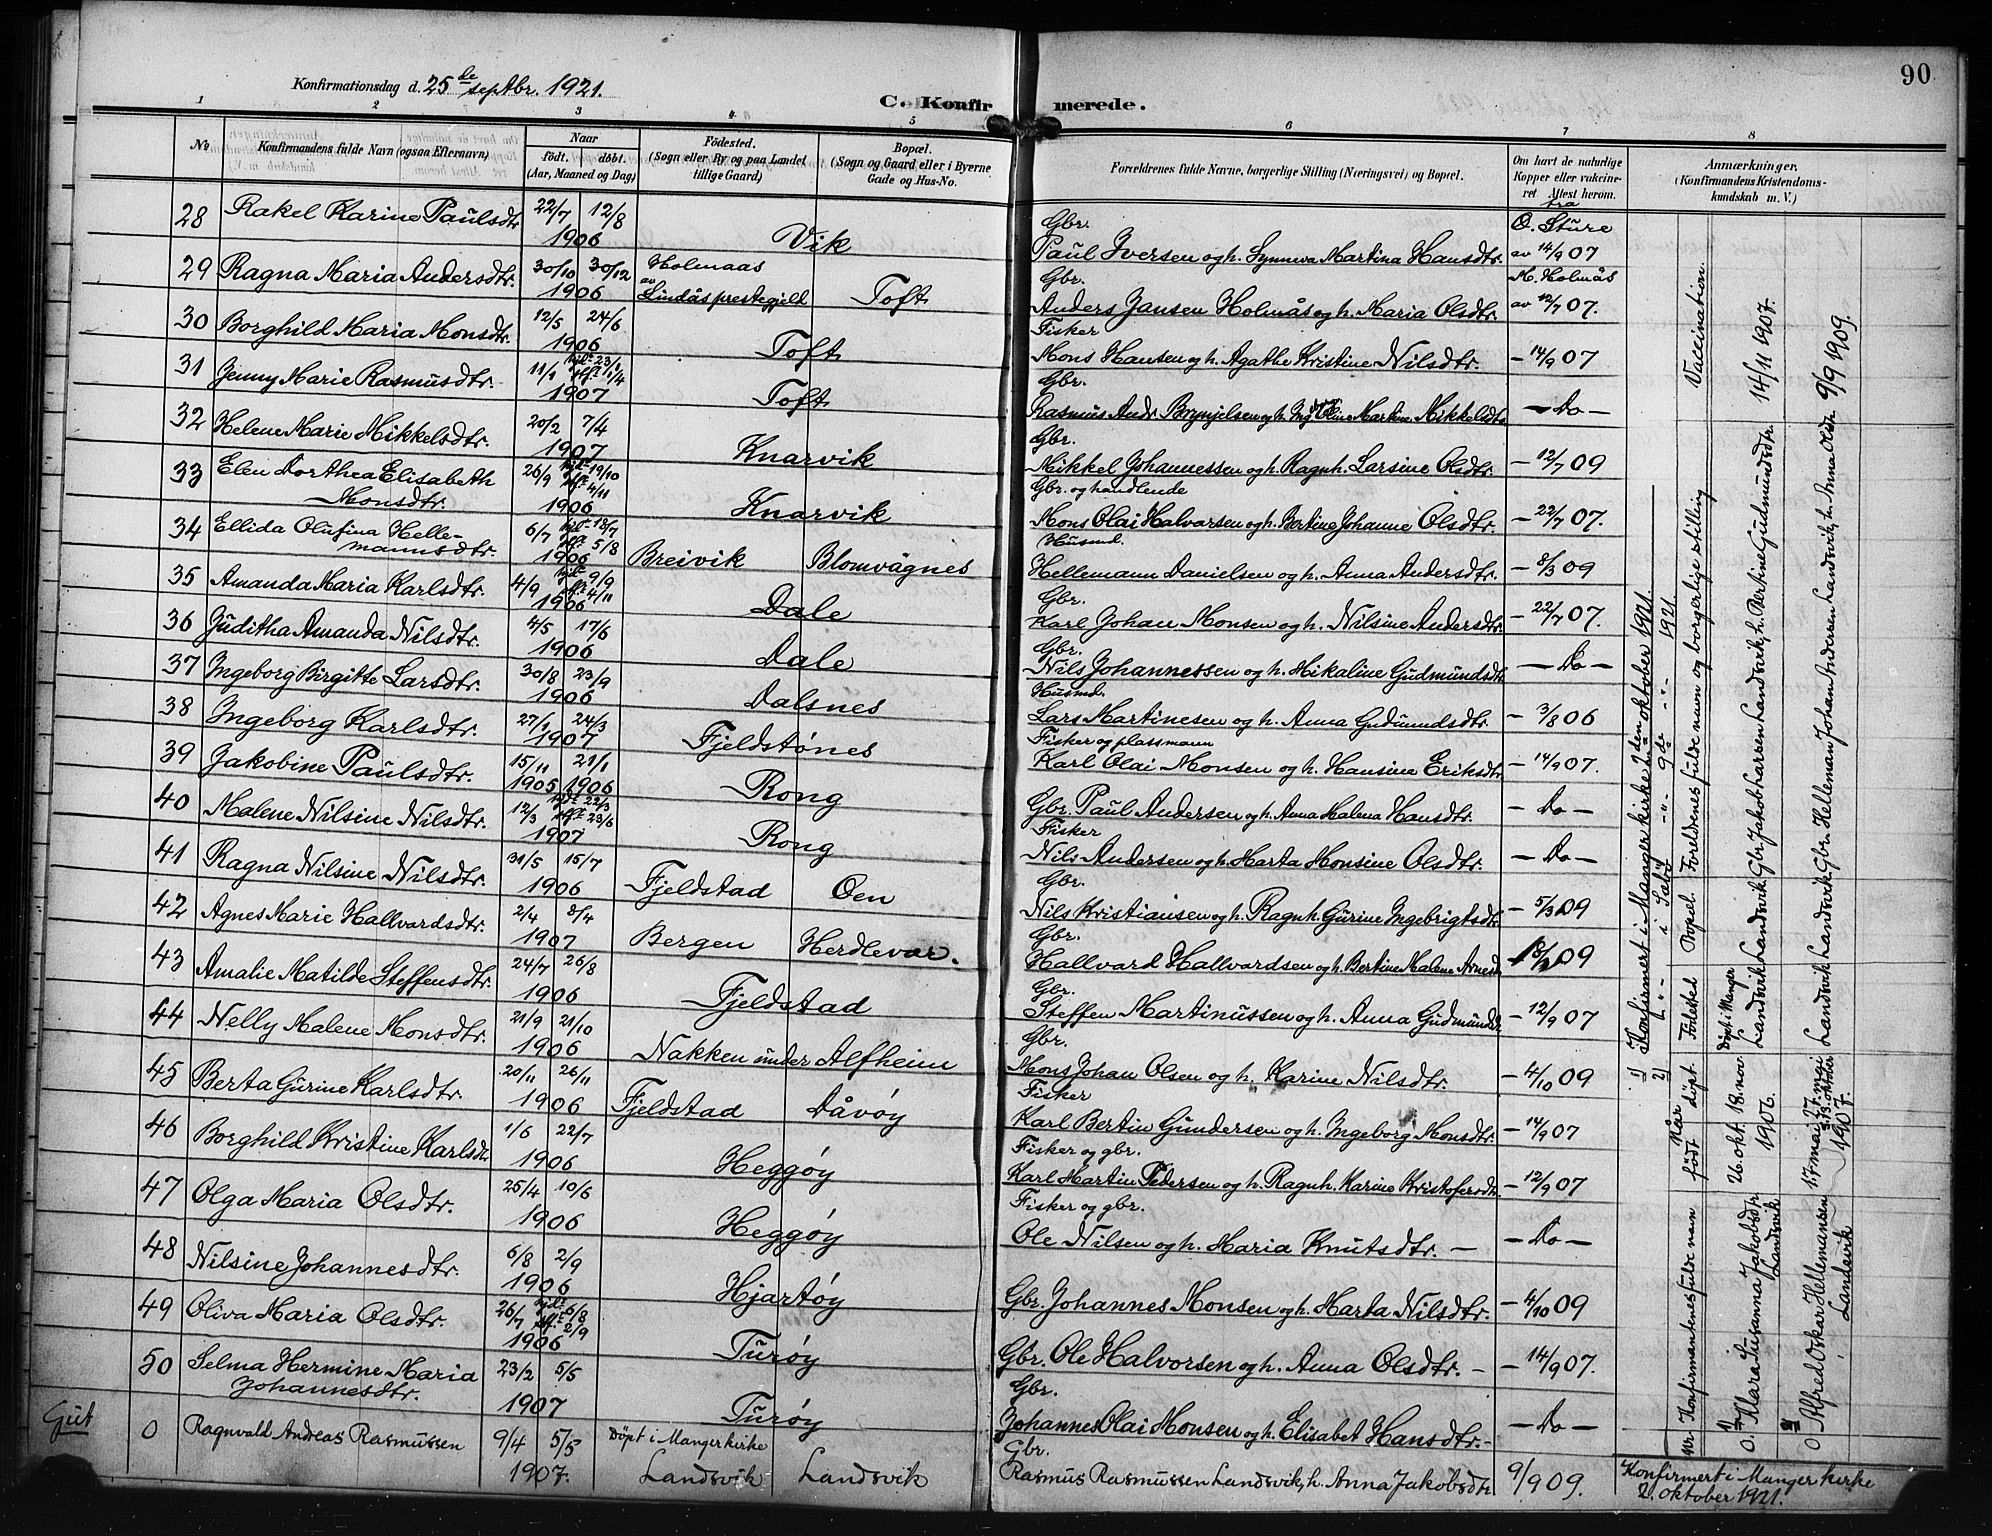 90
Konfirmationsdag d. 25de septbr. 1921.
C. Konfirmerede.
1 2 3 4 5 6 7 8
No
Konfirmandens fulde Navn (ogsaa Efternavn)
Naar
født. døbt.
(Aar, Maaned og Dag)
Födested.
(Sogn eller By og paa Landet
tillige Gaard)
Bopæl.
(Sogn og Gaard eller i Byerne
Gade og Hus-No.
Forældrenes fulde Navne, borgerlige Stilling (Næringsvei) og Bopæl.
Om havt de naturlige
Kopper eller vakcine-
ret Attest herom.
Anmærkninger,
(Konfirmandens Kristendoms-
kundskab m. V.)
28 Rakel Karine Paulsdtr 22/7 12/8 1906 Vik Gbr. Paul Iversen og h. Synneva Martina Hansdtr. fra O. Sture av 14/9 07
29 Ragna Maria Andersdtr. 30/10 30/12 1906 Holmaas av Lindås prestegjeld Toft Gbr. Anders Jansen Holmås og h. Maria Olsdtr. M. Holmås av 12/7 07.
30 Borghild Maria Monsdtr. 12/5 24/6 1906 Toft Fisker Mons Hansen og h. Agathe Kristine Nilsdtr. – 14/9 07
31 Jenny Marie Rasmusdtr. 11/1 1907 Toft Gbr. Rasmus Andr. Brynjelsen og h. Martine Mikkelsdtr. – Do –
32 Helene Marie Mikkelsdtr. 20/2 7/4 1907 Knarvik Gbr. Mikkel Johannessen og h. Ragnh. Larsine Olsdtr. – 12/7 09
33 Elen Dorthea Elisabeth Monsdtr. 26/9 19/10 4/11 1906 Knarvik Gbr. og handlende Mons Olai Halvorsen og h. Bertine Johanne Olsdtr. – 22/7 07.
34 Ellida Olufina Hellemannsdtr. 6/7 18/7 5/8 1906 Breivik Blomvågnes Husmd. Hellemann Danielsen og h. Anna Andersdtr. – 8/3 09
35 Amanda Maria Karlsdtr. 4/9 9/9 4/11 1906 Dale Gbr. Karl Johan Monsen og h. Nilsine Andersdtr. – 22/7 07.
36 Juditha Amanda Nilsdtr. 4/5 17/6 1906 Dale Gbr. Nils Johannessen og h. Mikaline Gudmundsdtr – Do –
37 Ingeborg Birgitte Larsdtr. 30/8 23/9 1906 Dalsnes Husmd. Lars Martinesen og h. Anna Gudmundsdtr. – 3/8 06
38 Ingeborg Karlsdtr. 27/1 24/3 1907 Fjeldstønes Fisker og plassmann Karl Olai Monsen og h. Hansine Eriksdtr – 14/9 07.
39 Jakobine Paulsdtr. 15/11 1905 21/1 1906 Rong Gbr. Paul Andersen og h. Anna Malena Hansdtr. – Do –
40 Malene Nilsine Nilsdtr. 12/3 22/3 23/6 1907 Rong Fisker Nils Andersen og h. Marta Monsine Olsdtr. – Do –
41 Ragna Nilsine Nilsdtr. 31/5 15/7 1906 Fjeldstad Oen Gbr. Nils Kristiansen og h. Ragnh. Gurine Ingebrigtsdtr. – 5/3 09
42 Agnes Marie Hallvardsdtr. 2/4 8/4 1907 Bergen Herdlevær. Gbr. Hallvard Hallvardsen og h. Bertine Malene Arnesdtr 09
43 Amalie Matilde Steffensdtr. 24/7 26/8 1906 Fjeldstad Gbr. Steffen Martinussen og h. Anna Gudmundsdtr – 12/9 07
44 Nelly Malene Monsdtr. 21/9 21/10 1906 Nakken under Alfheim Gbr. Mons Johan Olsen og h. Karine Nilsdtr. – 4/10 09
45 Berta Gurine Karlsdtr. 20/11 26/11 1906 Fjeldstad Dåvøy Fisker Karl Bertin Gundersen og h. Ingeborg Monsdtr. – 14/9 07
46 Borghild Kristine Karlsdtr 1/6 22/7 1906 Heggøy Fisker og gbr. Karl Martin Pedersen og h. Ragnh. Karine Kristofersdtr – 12/9 07
47 Olga Maria Olsdtr. 25/4 10/6 1906 Heggøy Fisker og gbr. Ole Nilsen og h. Maria Knutsdtr. – – Do –
48 Nilsine Johannesdtr. 6/8 2/9 1906 Hjartøy Gbr. Johannes Monsen og h. Marta Nilsdtr. – 4/10 09
49 Oliva Maria Olsdtr. 26/7 6/8 2/9 1906 Turøy Gbr. Ole Halvorsen og h. Anna Olsdtr. – – 14/9 07.
50 Selma Hermine Maria Johannesdtr. 23/2 5/5 1907 Turøy Gbr. Johannes Olai Monsen og h. Elisabet Hansdtr. – – Do –
Gut 0 Ragnvald Andreas Rasmussen 9/4 5/5 1907. Døpt i Manger kirke Landsvik Landsvik Gbr. Rasmus Rasmussen Landsvik, h. Anna Jakobsdtr 9/9 09. Konfirmert i Manger kirke 2. oktober 1921.
1) Konfirmert i Manger kirke 2den oktober 1921
2) –"– i Sæbø –"– 9de –"– 1921
Nr. Konfirmantenes fulde navn Når født døpt. Fødested Bopæl. Foreldrenes fulde navn og borgerlige stilling Vaccination.
1) 0. Klara Susanna Jakobsdtr Landsvik 26. okt. 18. nov. 1906. Døpt: Manger Landsvik Landsvik Gbr. Jakob Larsen Landsvik, h. Bertine Gudmundsdtr. 14/11 1907.
0 Alfred Oskar Hellemansen Landsvik 17. mai 27. mai 1907. Landsvik Landsvik Gbr. Helleman Johan Andersen Landsvik, h. Anna Olsdtr. 9/9 1909.